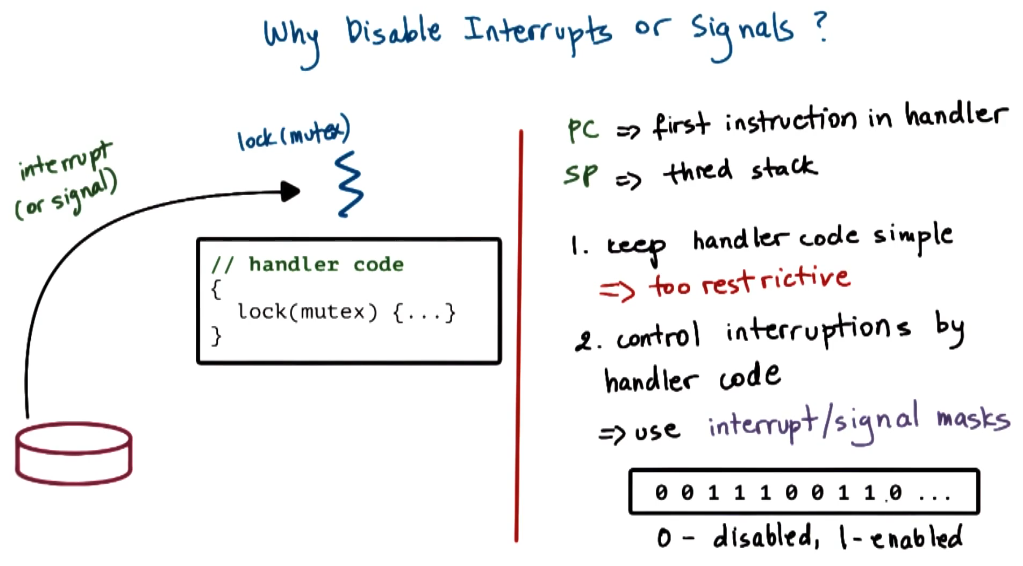 Why Disable Interrupts or Signals ?
interrupt
(or signal)
lock(mutex)
// handler code
{
lock(mutex) {...}
}
PC => first instruction in handler
SP => thred stack
1. keep handler code simple
=> too restrictive
2. control interruptions by
handler code
=> use interrupt/signal masks
0 0 1 1 1 0 0 1 1 0 ...
0 - disabled, 1 - enabled